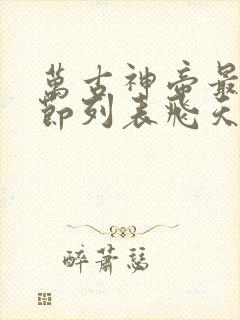 萬古神帝最
節列表飛天
醉蕭瑟